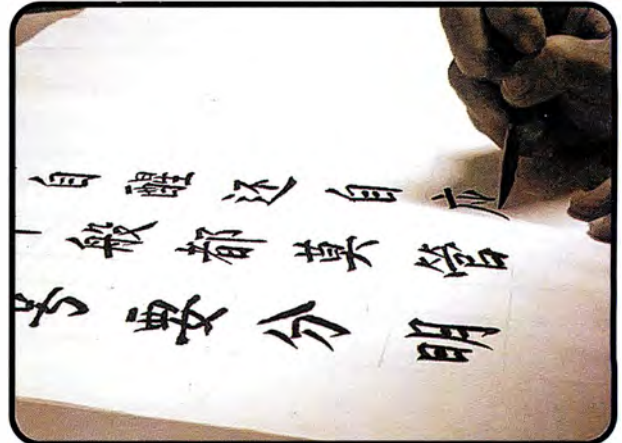 自醒还自
般都莫管
要分明